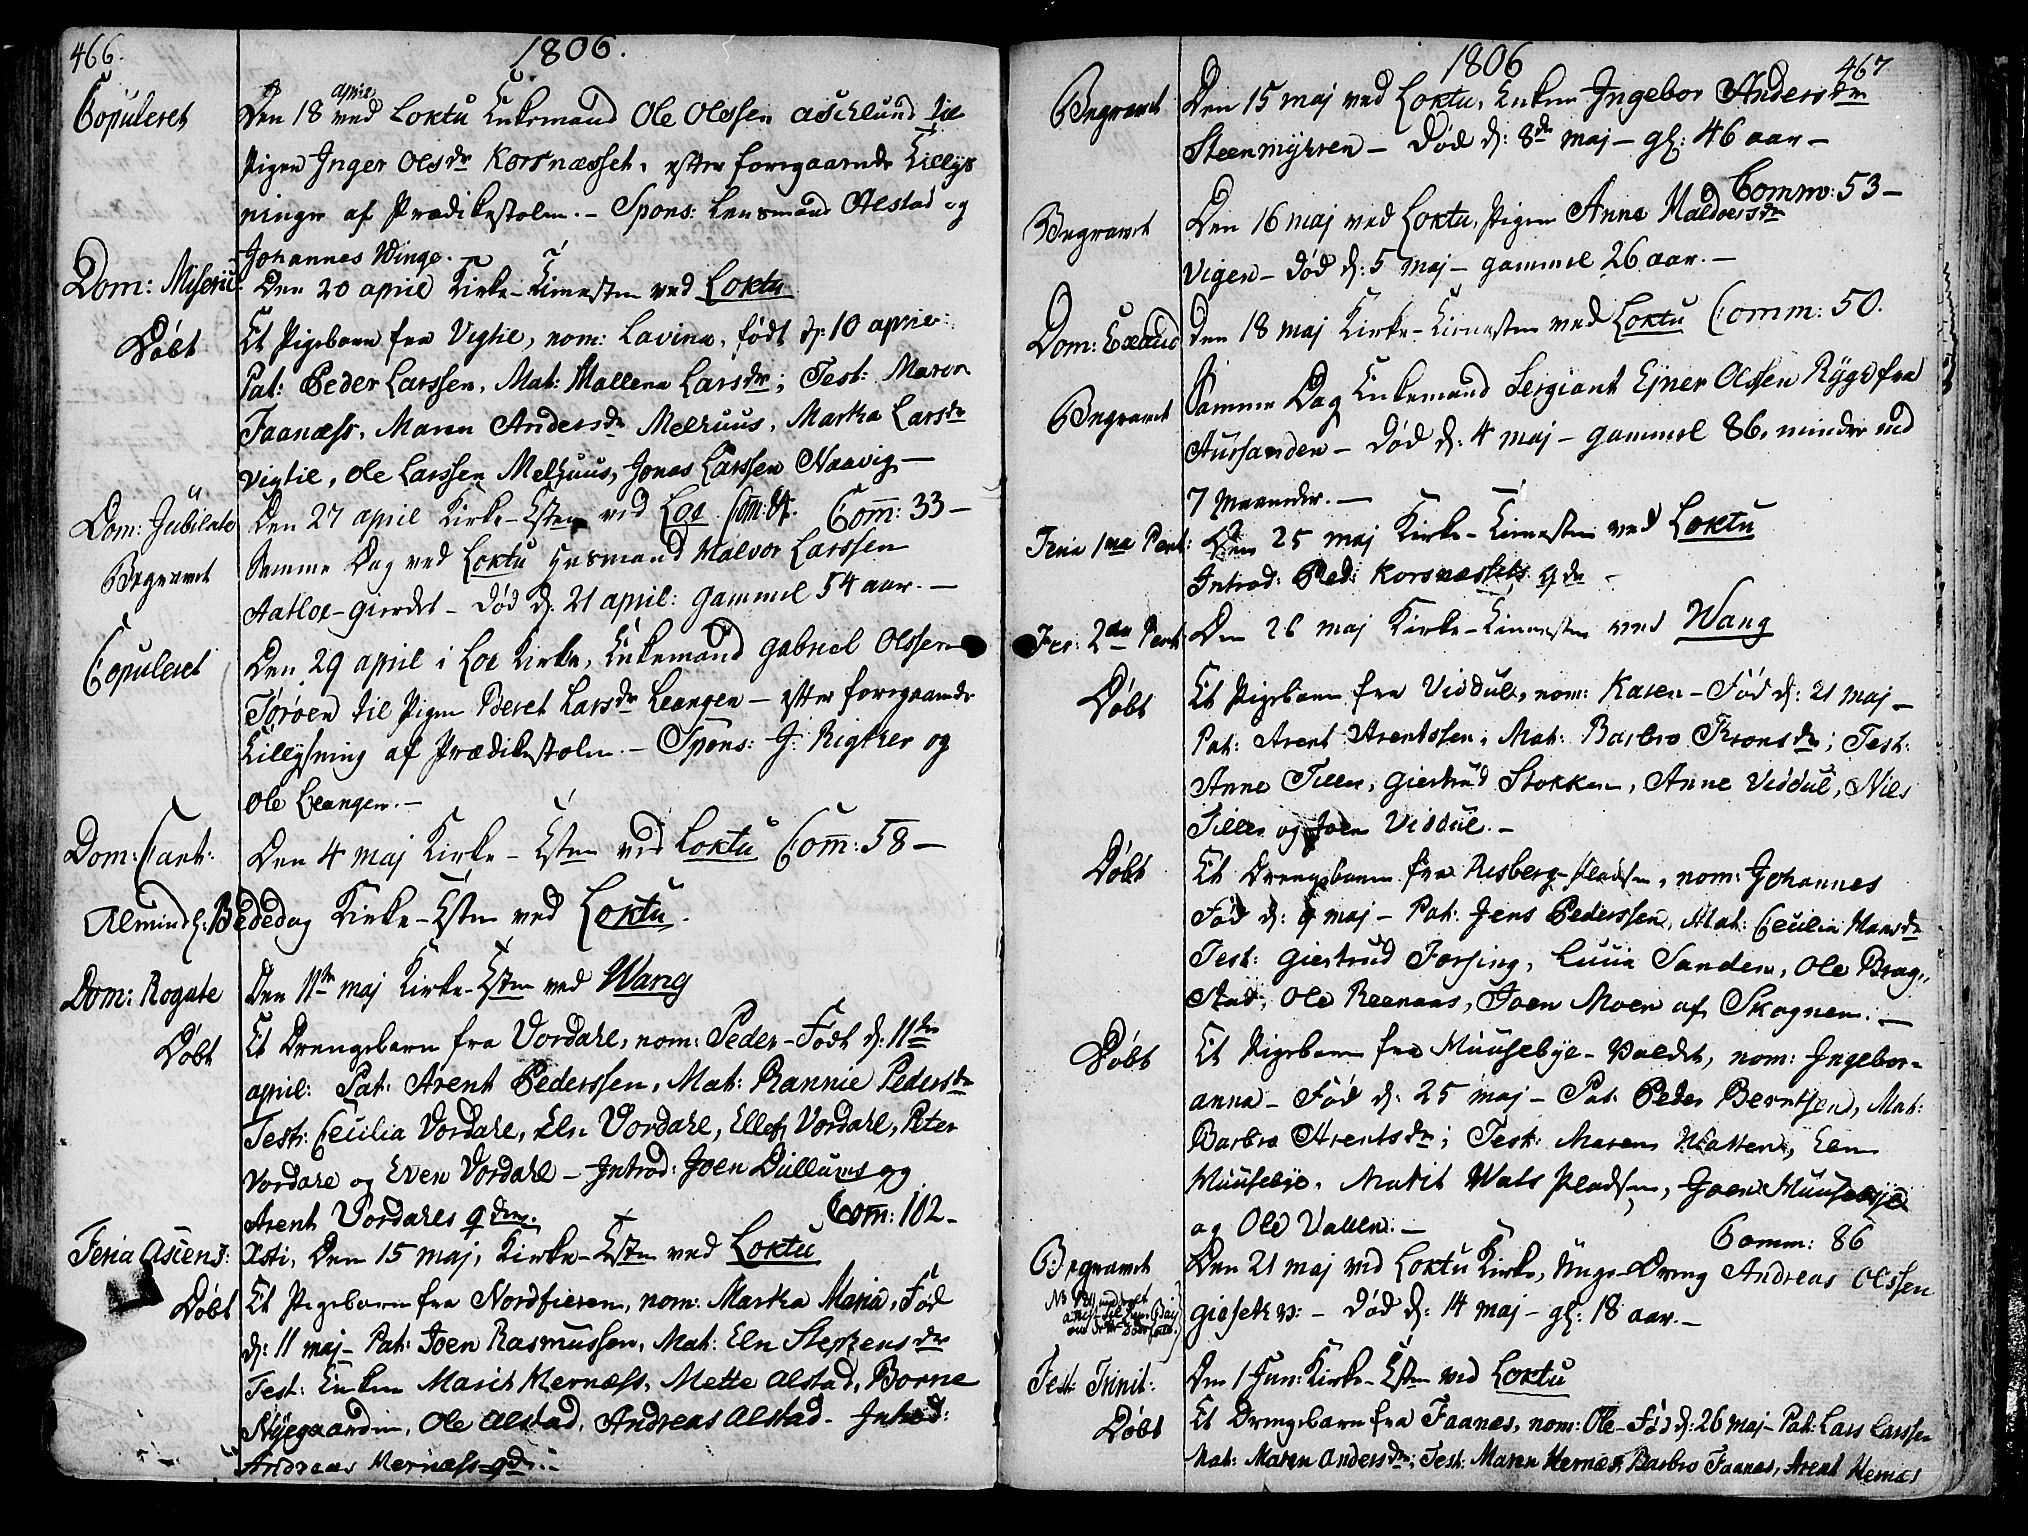 466.
1806.
Copuleret
Den 18 april ved Loktu Enkemand Ole Olssen aschlund til
Pigen Inger Olsdr Korsnæsset, efter foregaaende Tillys
ninger af Prædikestolen. - Spons: Lensmand Alstad og
Johannes Winge.
Dom: Miseric:
Den 20 april Kirke-Tienesten ved Loktu
Døbt
Et Pigebarn fra Vigtil, nom: Lavina, født d: 10 april:
Pat: Peder Larssen, Mat: Mallena Larsdr; Test: Maren
Faanæss, Maren Andersdr Melhuus, Martha Larsdr
Vigtil, Ole Larssen Melhuus, Jonas Larssen Naavig -
Dom: Jubilate
Den 27 april Kirke-Tsten ved Loe Com: 33 -
Begravet
Samme Dag ved Loktu Husmand Halvor Larssen
Aatloe-gierdet - Død d: 21 april: gammel 54 aar. -
Copuleret
Den 29 april i Loe Kirke, Enkemand Gabriel Olssen
Tørøen til Pigen Beret Larsdr Leangen - efter foregaaende
Tillysning af Prædikestolen. - Spons: J: Rigther og
Ole Leangen. -
Dom: Cant:
Den 4 maj Kirke-Tsten ved Loktu Com: 58 -
Almindl: Bededag Kirke-Tsten ved Loktu.
Dom: Rogate
Den 11te maj Kirke-Tsten ved Wang
Døbt
Et Drengebarn fra Vordahl, nom: Peder - Født d: 11te
april: Pat: Arent Pederssen, Mat: Rannie Pedersdr
Test: Cecilia Vordahl, Eln Vordahl, Ellef Vordahl, Peter
Vordahl og Even Vordahl - Introd: Joen Dullums og
Arent Vordahls qdr. Com: 102 -
Feria Ascens:
Xsti, Den 15 maj, Kirke-Tsten ved Loktu
Døbt
Et Pigebarn fra Nordfieren, nom: Martha Maria, Fød
d: 11 maj - Pat: Joen Rasmussen, Mat: Eln Stephensdr
Test: Enken Marit Hernæss, Mette Alstad, Borne
Nyegaarden, Ole Alstad, Andreas Alstad - Introd:
Andreas Hernæss qdr: -
1806
467
Begravet
Den 15 maj ved Loktu, Enken Ingebor Andersdr
Steenmyhren - Død d: 8de maj - gl: 46 aar -
Comm: 53 -
Begravet
Den 16 maj ved Loktu, Pigen Anne Haldorsdr
Vigen - Død d: 5 maj - gammel 26 aar. -
Dom: Exaud
Den 18 maj Kirke-Tienesten ved Loktu Comm: 50.
Begravet
Samme Dag Enkemand Sergiant Ejner Olssen Rygg fra
Aursanden - Død d: 4 maj - gammel 86, mindre end
7 Maaneder. -
Feria 1ma Pent:
Den 25 maj Kirke-Tienesten ved Loktu
Introd: Ped: Korsnæssets qdr -
Fer: 2da Pent
Den 26 maj Kirke-Tienesten ved Wang
Døbt
Et Pigebarn fra Viddul, nom: Karen - Fød d: 21 maj -
Pat: Arent Arentssen, Mat: Barbro Thronsdr; Test:
Anne Tiller, Giertrud Stokken, Anne Viddul, Niels
Tiller og Joen Viddul. -
Døbt
Et Drengebarn fra Risberg-Pladsen, nom: Johannes
Fød d: 9 maj - Pat: Jens Pederssen, Mat: Cecilia Hansdr
Test: Giertrud Forsing, Lucia Sanden, Ole Brag,
stad, Ole Reenaas, Joen Moen af Skognen. -
Døbt
Et Pigebarn fra Muusebye-Valdet, nom: Ingebor-
anna - Fød d: 25 maj - Pat: Peder Berntsen, Mat:
Barbro Arentsdr; Test: Maren Watten, Eln
Muusebye, Marit Wals Pladsen, Joen Muusebye
og Ole Vallen. -
Comm: 86
Begravet
Den 21 maj ved Loktu Kirke, Unge-Dreng Andreas Olssen
Gieseth v: - Død d: 14 maj - gl: 18 aar. -
Fest: Trinit:
Den 1 Jun: Kirke-Tsten ved Loktu
Døbt
Et Drengebarn fra Faanæs, nom: Ole - Fød d: 26 maj - Pat: Lars Larssen
Mat: Maren Andersdr; Test: Maren Hernæs, Barbro Faanæs, Arent Hernæs